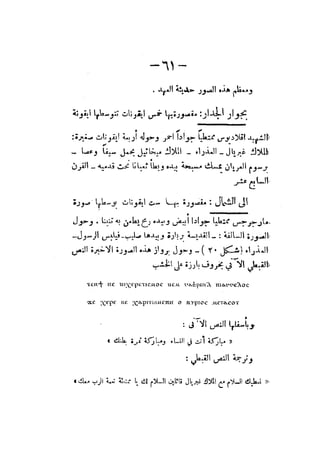 — ٦١ —
ومعظم هذه الصور حديثة العهد .
بجوار الجدار : مقصورة بها خمس ايقونات تتوسطها ايقونة
الشهيد اقلاديوس ممتطياً جواداً احمر وحوله أربعة ايقونات صغيرة :
الملاك غبريال — العذراء — الملاك ميخائيل يحمل سيفاً وعصا —
برسوم العريان يمسك مسبحة بيده وبطأ ثعباناً تحت قدميه — القرن
السابع عشر
الى الشمال : مقصورة بها ست ايقونات يوسطها صورة
مارجرجس ممتطياً جواداً أبيض وبيده رمح يطعن به تنيناً . وحول
الصورة السالفة : — القديسة بربارة وبيدها صليب . فيلبس الرسول —
العذراء ( شكل ٢٠ ) — وحول برواز هذه الصورة الاخيرة النص
القبطي الآتي بحروف بارزة على الخشب
ⲭⲉ ⲭⲉⲣⲉ ⲕⲉ ⲟ ⲕⲩⲣⲓⲟⲥ ⲙⲉⲧⲁⲥⲟⲩ
وبأسفلها النص الآتي :
« مباركة أنت في النساء ومباركة ثمرة بطنك »
وترجمة النص القبطي :
« نعطيك السلام مع الملاك غبريال قائلين السلام لك يا ممتلئة نعمة الرب معك »